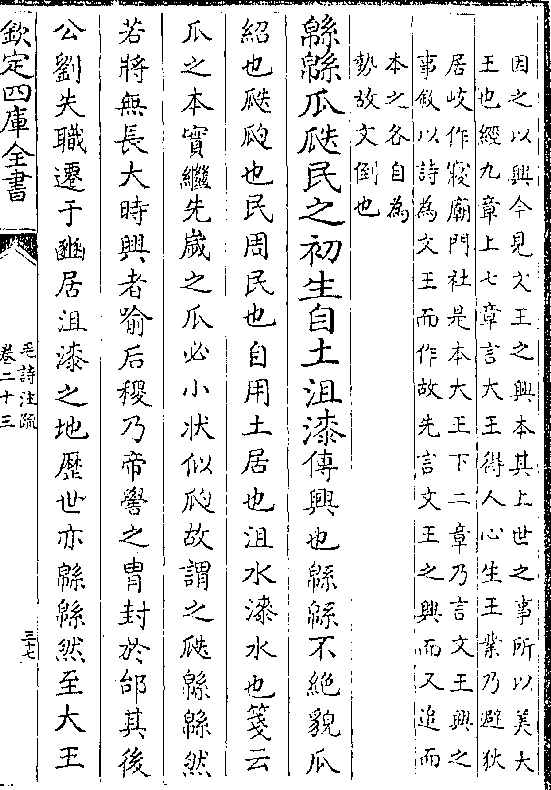 因之以興今見文王之興本其上世之事所以美大
王也經九章上七章言大王得人心生王業乃避狄
居岐作寢廟門社是本大王下二章乃言文王興之
事叙以詩為文王而作故先言文王之興而又追而
本之各自為
勢故文倒也
緜緜瓜瓞民之初生自土沮漆傳興也緜緜不絶貌瓜
紹也瓞瓝也民周民也自用土居也沮水漆水也箋云
瓜之本實繼先歲之瓜必小狀似瓝故謂之瓞緜緜然
若將無長大時興者喻后稷乃帝嚳之胄封於邰其後
公劉失職遷于豳居沮漆之地歷世亦緜緜然至大王
欽定四庫全書
毛詩注疏
卷二十三
三七